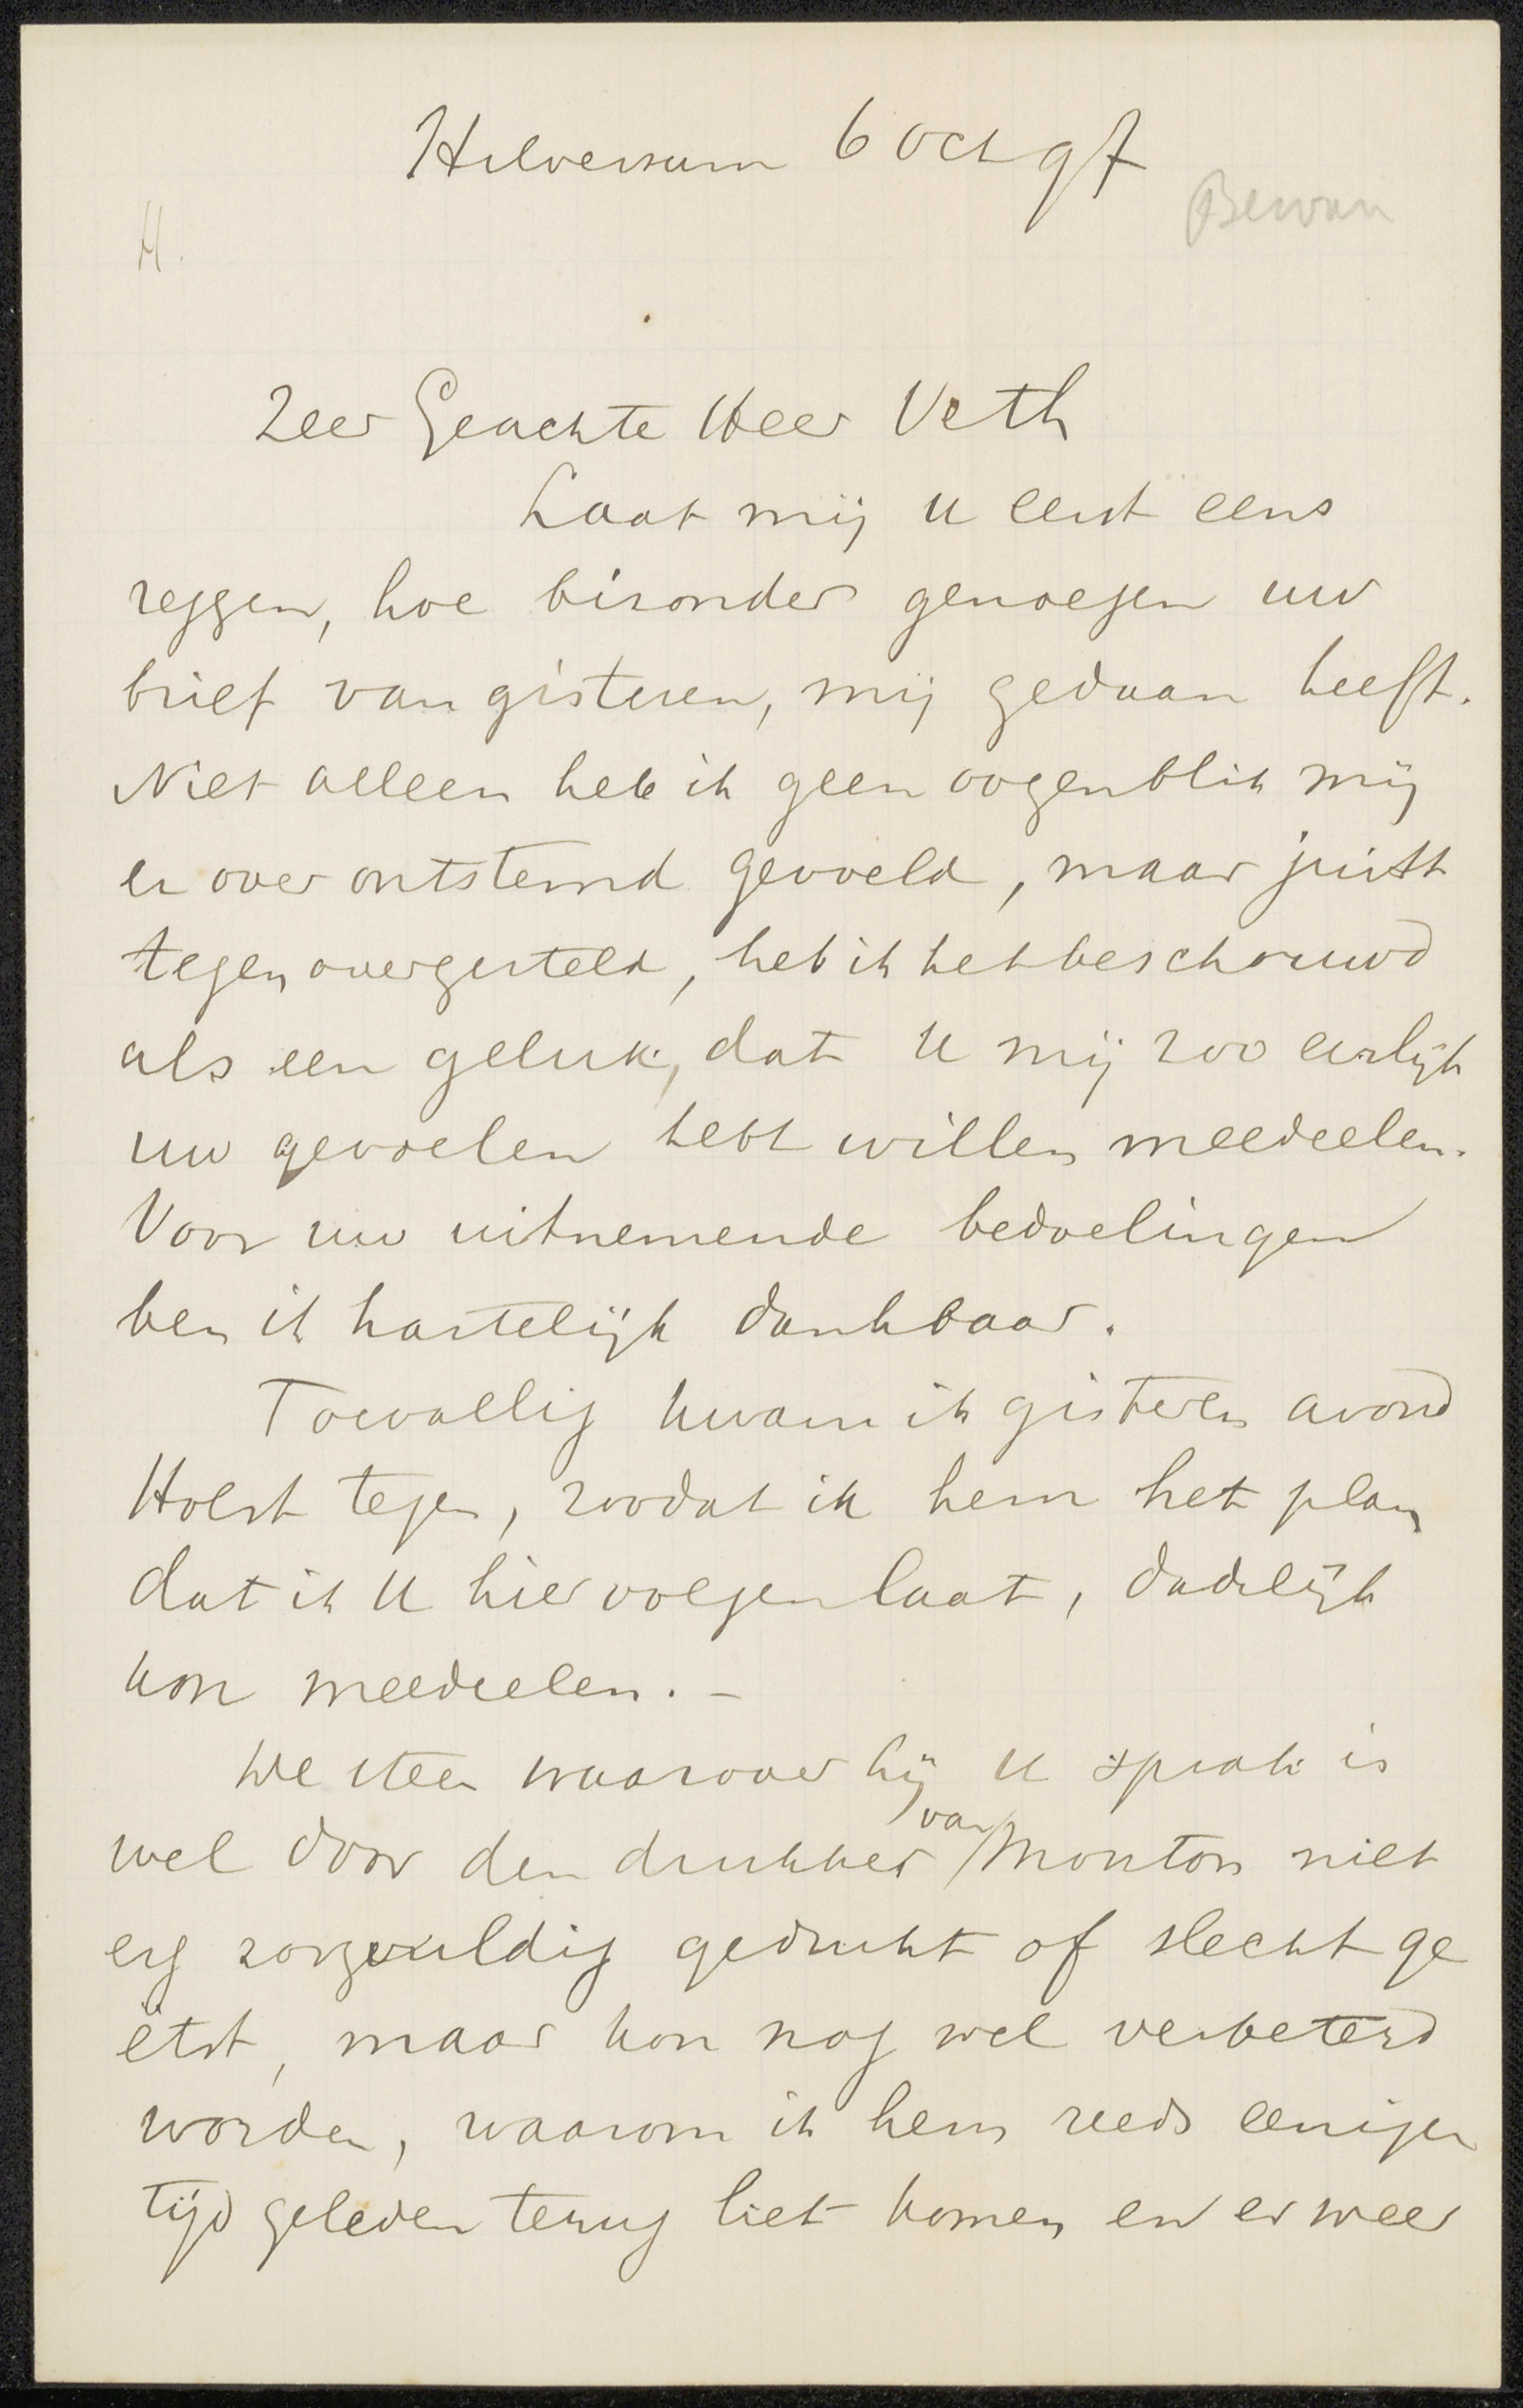 Hilversum 6 Oct 97
Bewan
H.
Zeer Geachte Heer Veth
Laat mij U eerst eens
zeggen, hoe bizonder genoegen uw
brief van gisteren, mij gedaan heeft.
Niet alleen heb ik geen oogenblik mij
er over ontstemd gevoeld, maar juist
tegenovergesteld, heb ik het beschouwd
als een geluk, dat U mij zoo eerlijk
uw gevoelen hebt willen meedeelen.
Voor uw uitnemende bedoelingen
ben ik hartelijk dankbaar.
Toevallig kwam ik gisteren avond
Holst tegen, zoodat ik hem het plan
dat ik U hier volgen laat, dadelijk
kon meedeelen. -
De steen waarover hij U sprak is
wel door den drukker van Mouton niet
erg zorgvuldig gedrukt of slecht ge
ëtst, maar kon nog wel verbeterd
worden, waarom ik hem reeds eenigen
tijd geleden terug liet komen en er weer